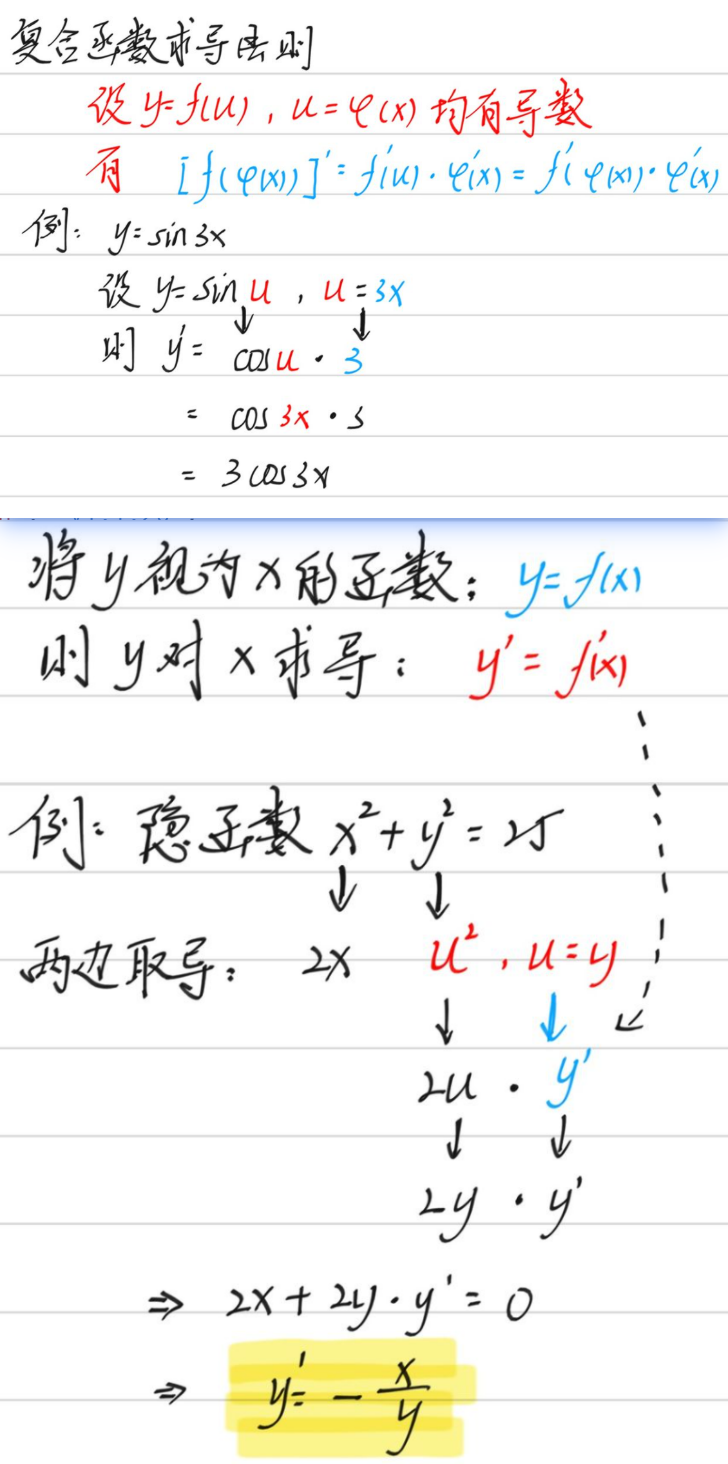 复合函数求导法则
设 y=f(u), u=φ(x) 均有导数
有 [f(φ(x))]'=f'(u)·φ'(x)=f'(φ(x))·φ'(x)
例: y=sin3x
设 y=sin u, u=3x
↓ ↓
则 y'= cosu · 3
= cos 3x · 3
= 3cos3x
将y视为x的函数: y=f(x)
则 y对x求导: y'=f'(x)
例: 隐函数 x²+y²=25
↓ ↓
两边取导: 2x u², u=y
↓ ↓
2u · y'
↓ ↓
2y · y'
⇒ 2x+2y·y'=0
⇒ y'=-x/y